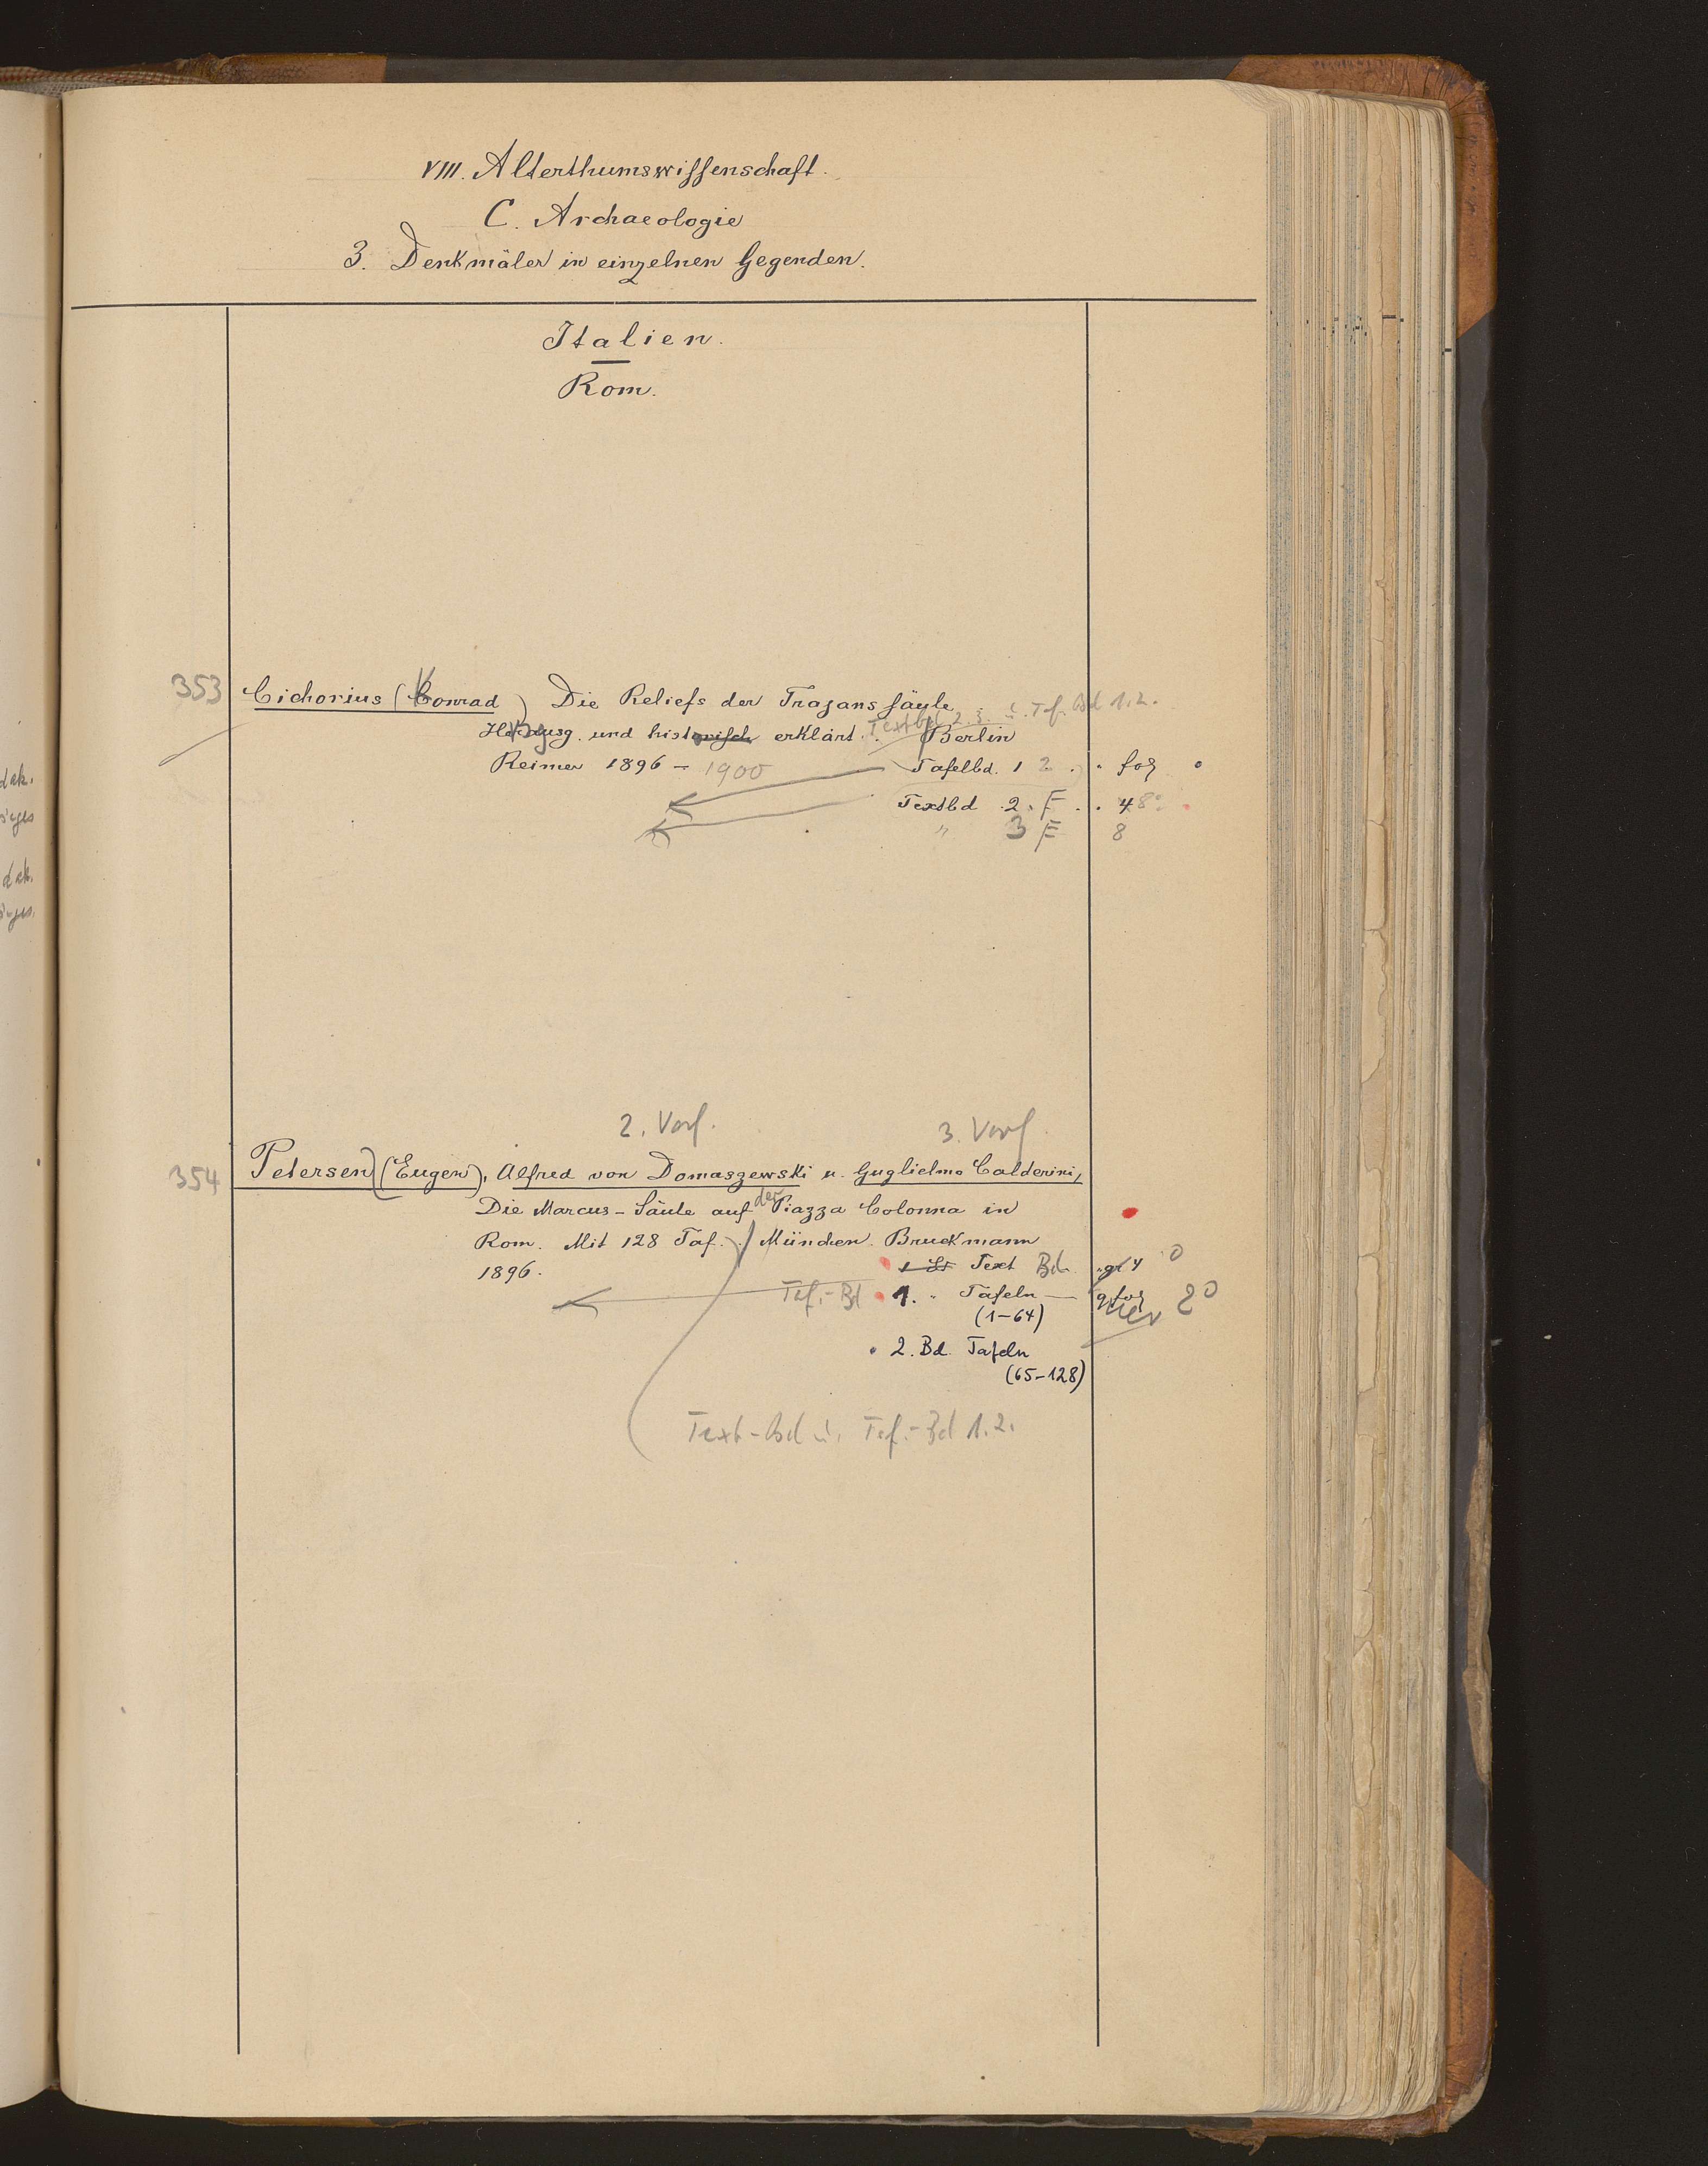 VIII. Alterthumswissenschaft.
C. Archaeologie
3. Denkmäler in einzelnen Gegenden.
Italien.
Rom.
353 Cichorius (Conrad) Die Reliefs der Trajanssäule
Textbd 2.3. u. Taf. Bd 1.2.
Herausg. und historisch erklärt. Berlin
Reimer 1896 - 1900 Tafelbd. 1 2. fol
Textbd 2. F. 4 8°
" 3 F 8
2. Verf. 3. Verf.
354 Petersen (Eugen), Alfred von Domaszewski u. Guglielmo Calderini,
Die Marcus-Säule auf der Piazza Colonna in
Rom. Mit 128 Taf. München Bruckmann
1896. Text Bd. gr 4°
Taf.-Bd 1. " Tafeln — gr fol 2°
(1-64)
2. Bd. Tafeln
(65-128)
Text-Bd u. Taf.-Bd 1.2.
dak.
dak.